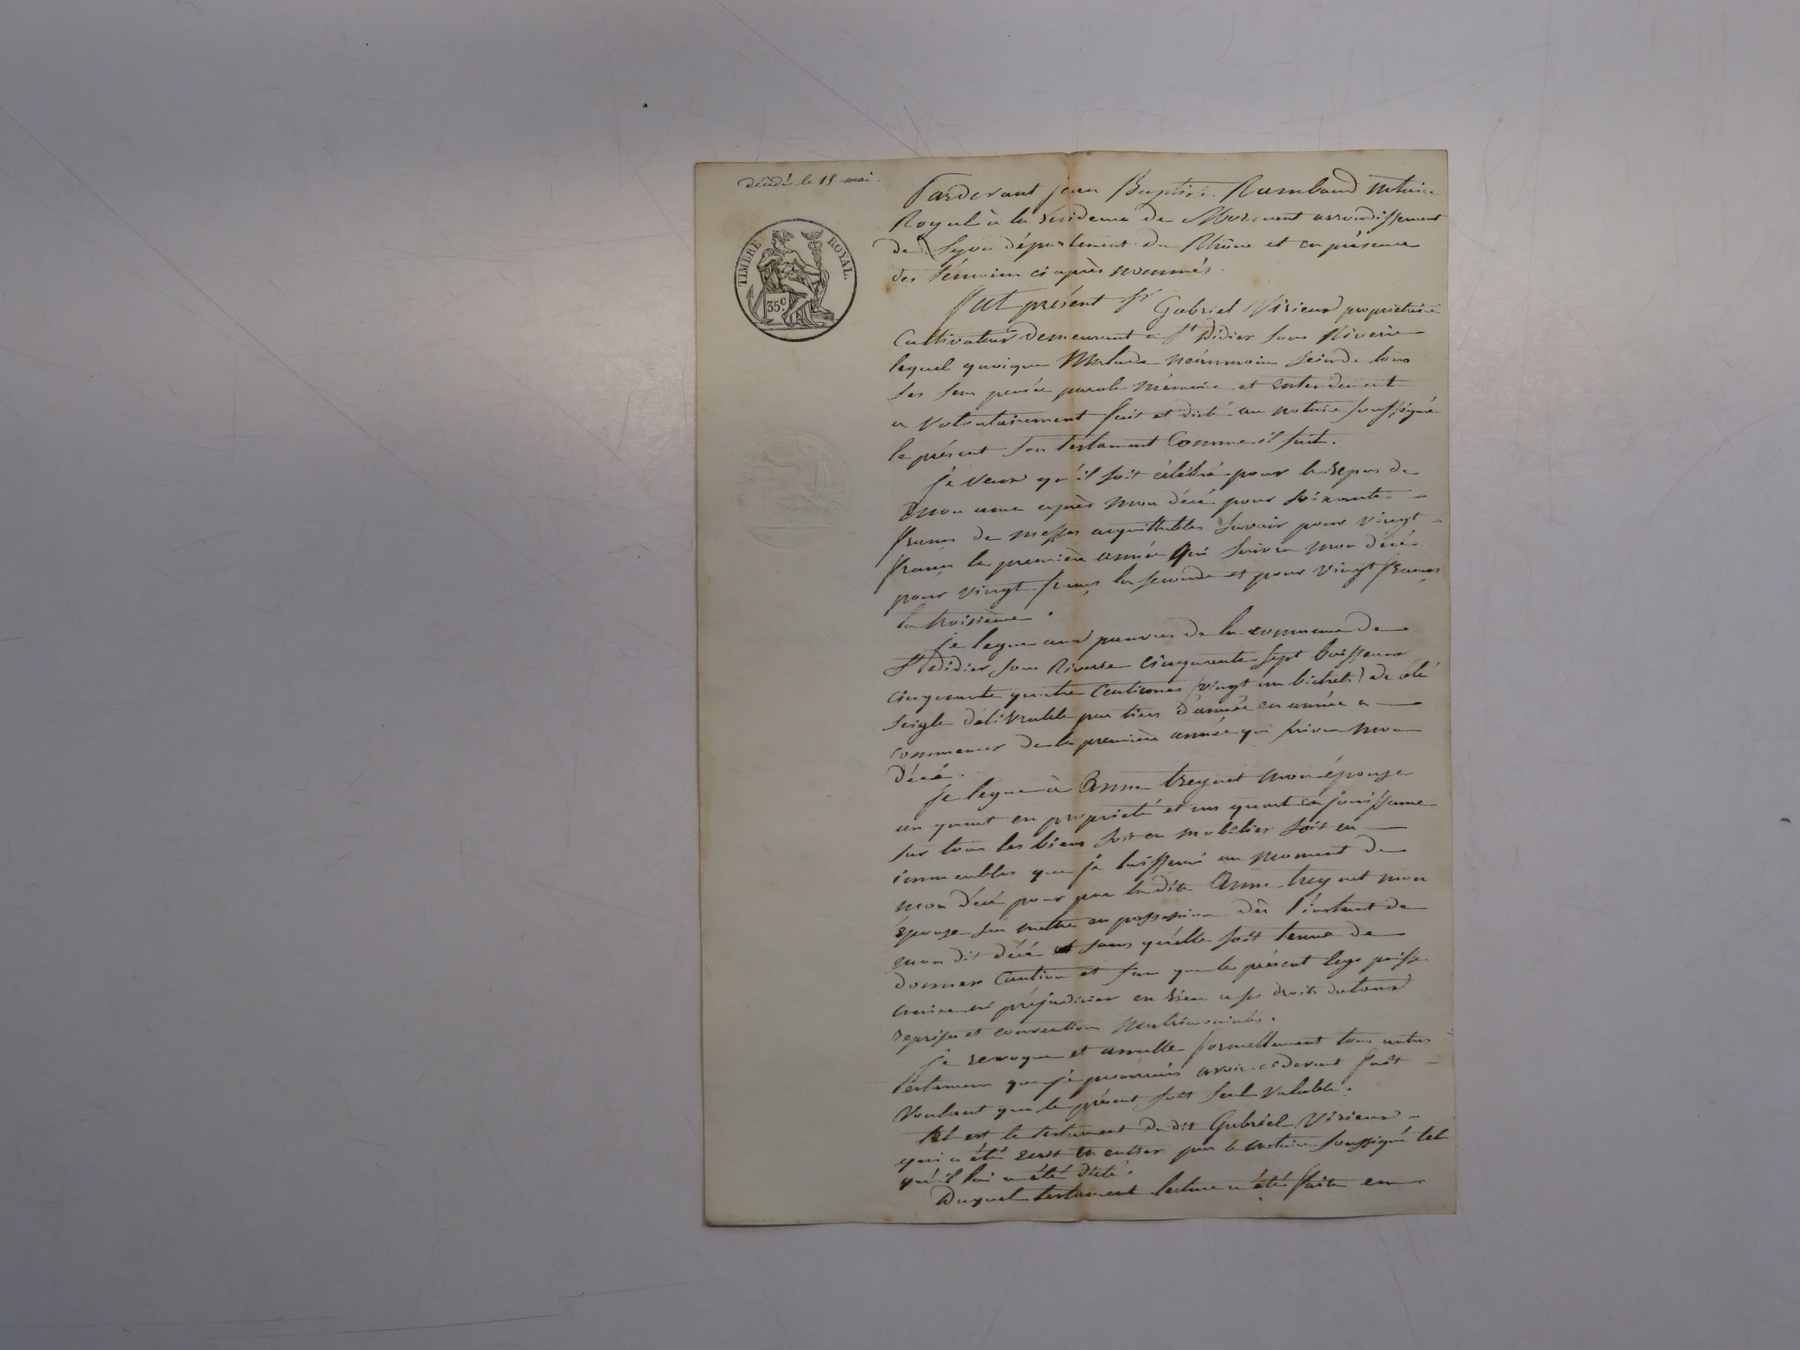 décédé le 15 mai.
TIMBRE ROYAL.
35 c.
Pardevant jean Baptiste Rambaud notaire
Royal à la résidence de Mornant arrondissement
de Lyon département du Rhône et en présence
des témoins ci après nommés.
fut présent Sr Gabriel Virieux propriétaire
Cultivateur demeurant à St Didier sous Riverie
lequel quoique Malade néanmoins sain de tous
ses sens pensée parole mémoire et entendement
a volontairement fait et dicté au notaire soussigné
le présent son testament Comme il suit.
je veux qu'il soit célébré pour le repos de
mon ame après mon décé pour soixante
francs de messes acquittables savoir pour vingt
francs la première année qui suivra mon décé
pour vingt francs la seconde et pour vingt francs
la troisième.
je legue aux pauvres de la commune de
St Didier sous Riverie cinquante sept boisseaux
cinquante quatre centiemes (vingt un bichets) de blé
seigle délivrable par tiers d'année en année a
commencer de la première année qui suivra mon
décé.
je legue à Anne treynet mon épouse
un quart en propriété et un quart en jouissance
sur tous les biens soit en mobilier soit en
immeubles que je laisserai au moment de
mon décé pour par la dite Anne treynet mon
épouse s'en mettre en possession dès l'instant de
mon dit décé et sans qu'elle soit tenue de
donner Caution et sans que le présent legs puisse
nuire ni préjudicier en rien a ses droits dotaux
reprises et convention matrimoniales.
je revoque et annulle formellement tous autres
testamens que je pourrais avoir cidevant fait
Voulant que le présent soit seul valable.
tel est le testament du dit Gabriel Virieux
qui a été écrit en entier par le notaire soussigné tel
qu'il lui a été dicté.
Duquel testament lecture a été faite en